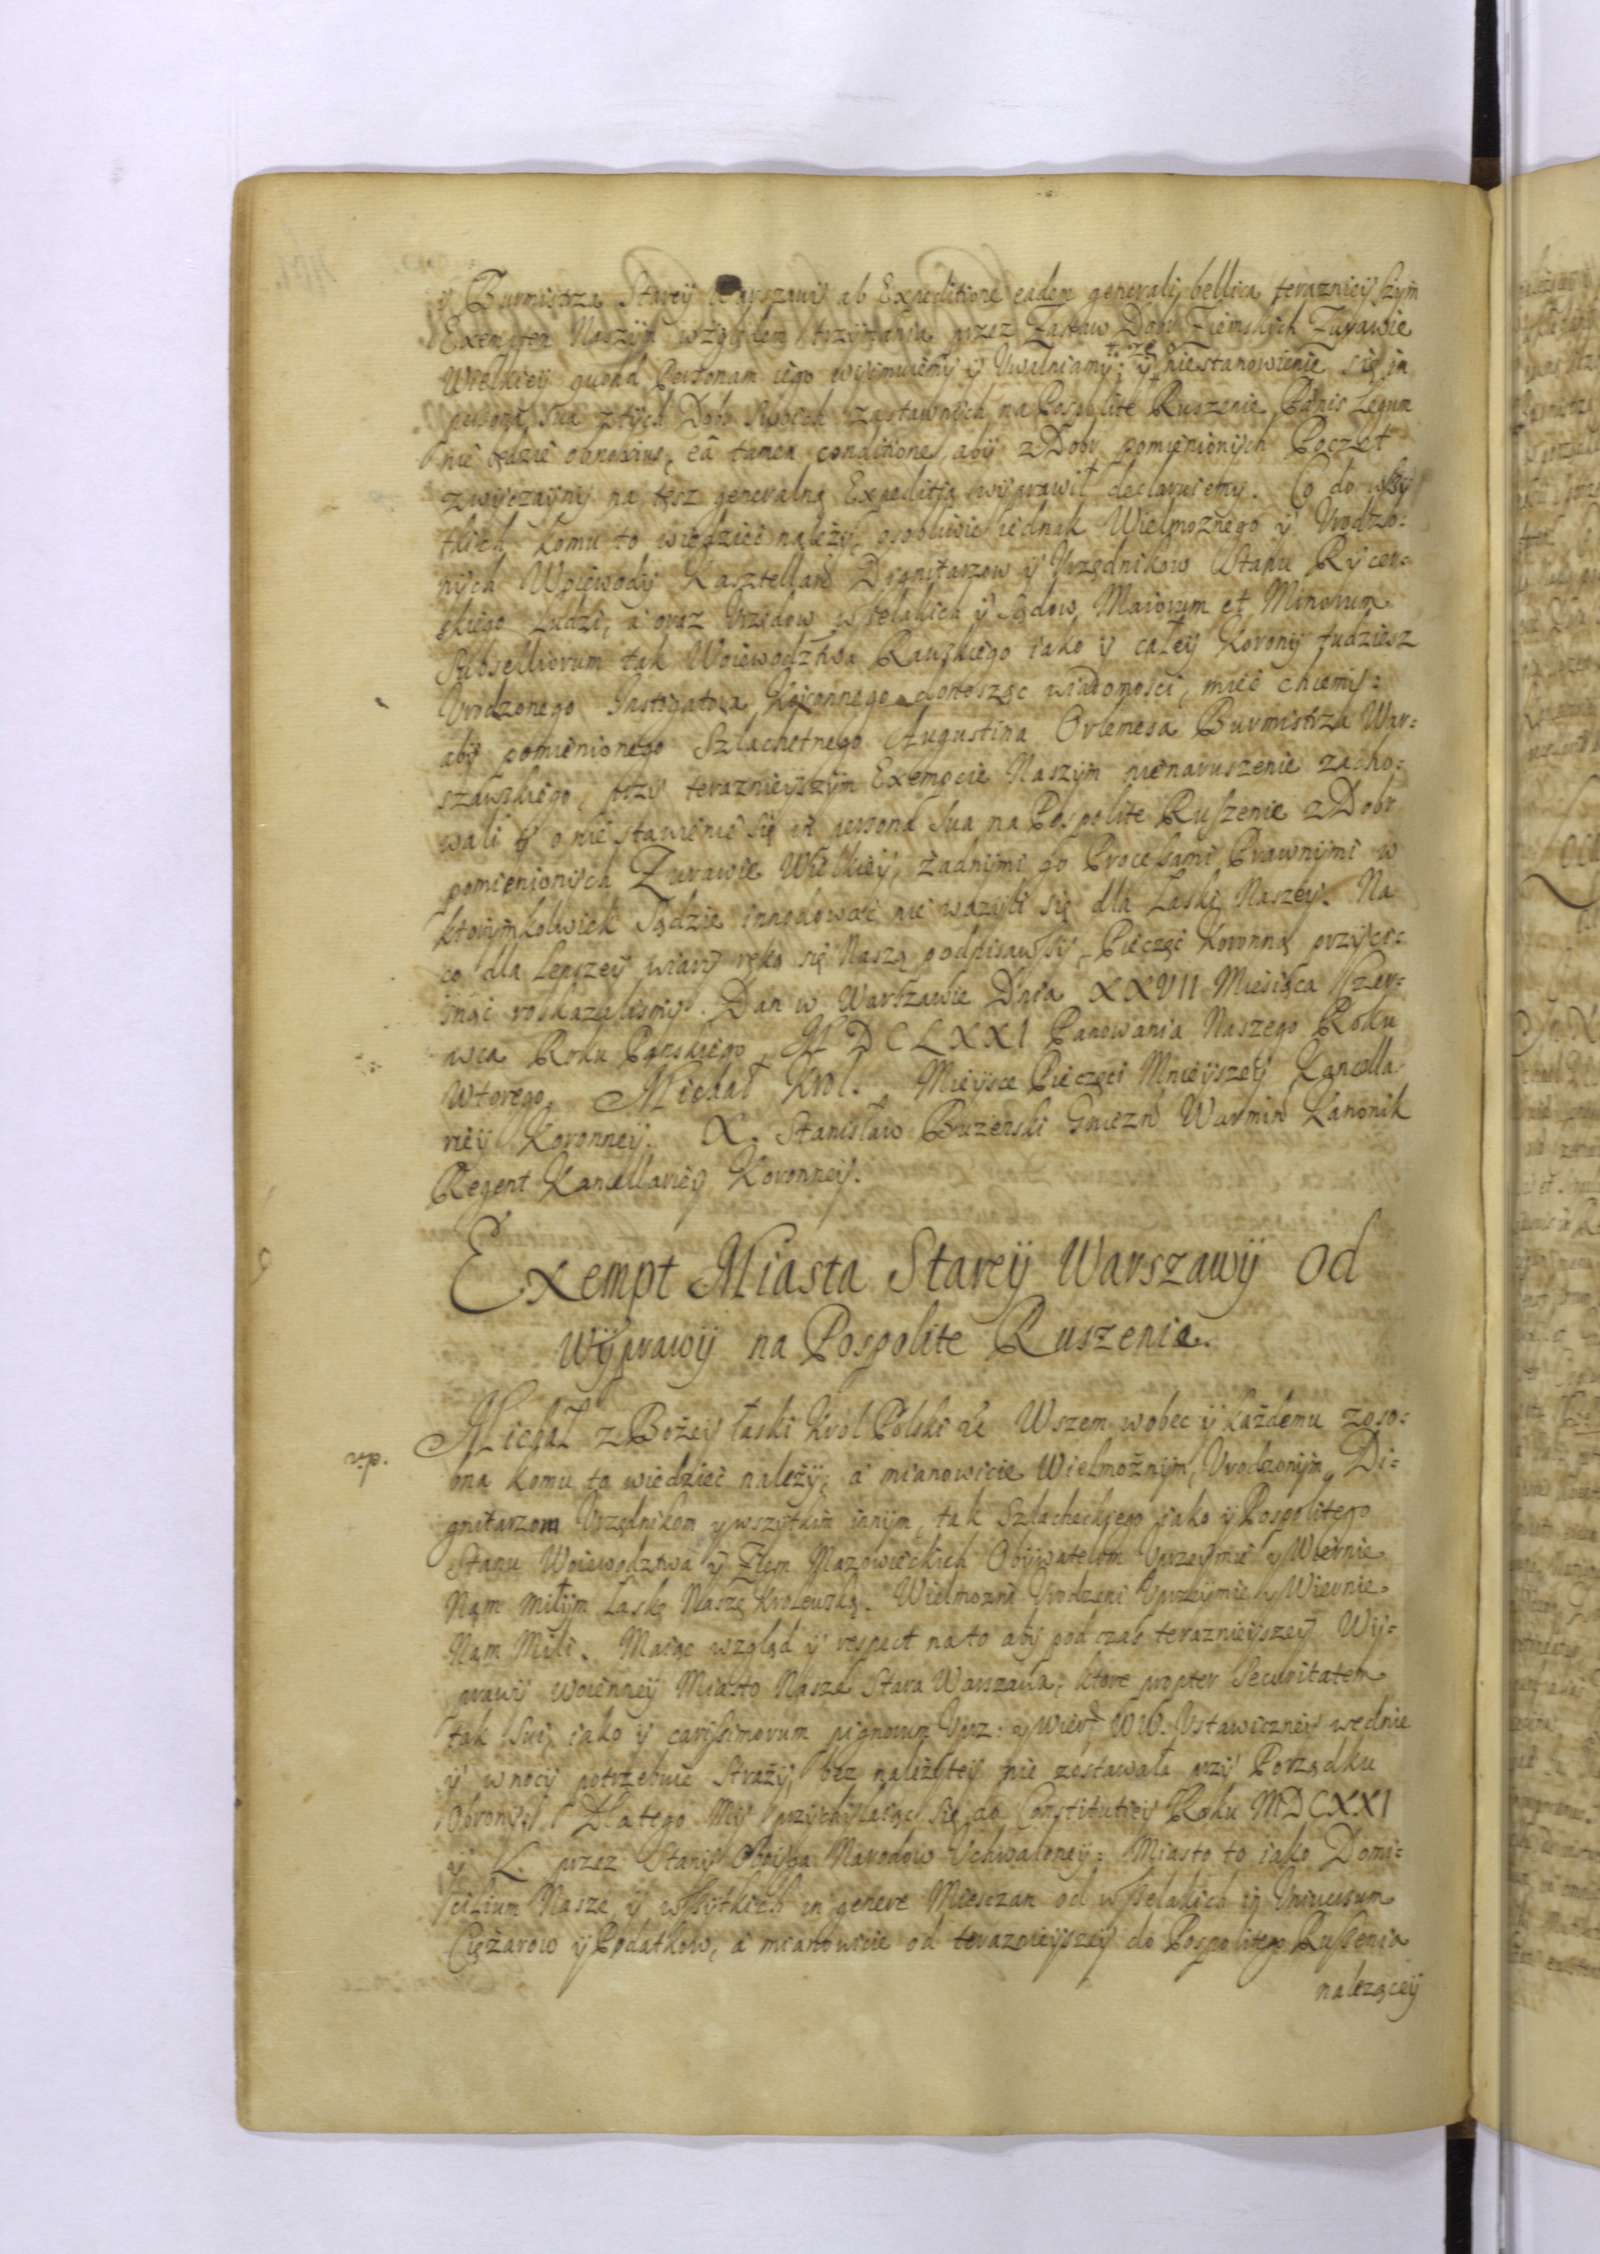 ÿ Burmistrza Stareÿ Warszawÿ ab Expeditione eadem generali bellica teraznieÿszÿm
Exemptem Naszÿm względem trzÿmania przez Zastaw Dobr Ziemskich Zurawie
Wielkieÿ quoad Personam iego wÿimuiemÿ ÿ Uwalniamÿ; ÿ ze niestanowienie się in
persona sua z tÿch Dobr Swoich zastawnÿch na Pospolite Ruszenie, Pœnis Legum
nie będzie obnoxius, eâ tamen conditione, abÿ z Dobr pomienionÿch Poczet
zwÿczaÿnÿ na tęsz generalną Expeditią wÿprawił declaruiemÿ. Co do wszÿ
tkich komu to wiedzieć nalezÿ, osobliwie iednak Wielmoznego ÿ Urodzo:
nÿch Woiewodÿ Kasztellan Dignitarzow ÿ Urzędnikow Stanu Rÿcer:
skiego Ludzi, a oraz Urzędow wszelakich ÿ Sądow Maiorum et Minorum
Subselliorum tak Woiewodztwa Rawskiego iako ÿ całeÿ Koronÿ tudziesz
Urodzonego Instigatora Koronnego donosząc wiadomości, mieć chcemÿ:
abÿ pomienionego Szlachetnego Augustina Orlemesa Burmistrza War:
szawskiego, przÿ teraznieÿszÿm Exempcie Naszÿm nienaruszenie zacho:
wali ÿ o nie stawienie się in persona sua na Pospolite Ruszenie z Dobr
pomienionÿch Zurawie Wielkieÿ, żadnÿmi go Processami Prawnÿmi w
ktorÿmkolwiek Sądzie innodować nie wazÿli się dla Łaski Naszeÿ. Na
co dla lepszeÿ wiarÿ ręką się Naszą podpisawszÿ, Pieczęć Koronną przÿci:
snąć roskazalismÿ. Dan w Warszawie Dnia XXVII Miesiąca Czer:
wca Roku Panskiego, MDCLXXI Panowania Naszego Roku
wtorego. Michał Krol. Mieÿsce Pieczęci Mnieÿszeÿ Kancella:
rieÿ Koronneÿ. X. Stanisław Buzenski Gniezn Warmin Kanonik
Regent Kancellarieÿ Koronneÿ.
Exempt Miasta Stareÿ Warszawÿ od
Wÿprawÿ na Pospolite Ruszenie.
Michał z Bożeÿ łaski Krol Polski &c Wszem wobec ÿ każdemu zoso:
bna komu to wiedzieć należÿ, a mianowicie Wielmożnÿm, Urodzonÿm, Di:
gnitarzom Urzędnikom ÿ wszÿtkim innÿm, tak Szlacheckiego iako ÿ Pospolitego
Stanu Woiewodztwa ÿ Ziem Mazowieckich Obÿwatelom Uprzeÿmie ÿ Wiernie
Nam miłÿm łaskę Naszę Krolewską. Wielmozni Urodzeni Uprzeÿmie ÿ Wiernie
Nam Mili. Maiąc wzgląd ÿ respect na to abÿ pod czas teraznieÿszeÿ Wÿ:
prawÿ woienneÿ Miasto Nasze Stara Warszawa, ktore propter Securitatem
tak sui, iako ÿ carissimorum pignorum Uprz: ÿ Wier: WW. Ustawiczneÿ wednie
ÿ w nocÿ potrzebuie Strażÿ, bez należÿteÿ nie zostawała przÿ Porządku
obronÿ. Dlatego Mÿ przÿchÿlaiąc się do Constitutieÿ Roku MDCXXI
ÿ L. przez Stanÿ Oboÿga Narodow Uchwaloneÿ: Miasto to iako Domi:
cilium Nasze, ÿ wszÿtkich in genere Mieszczan od wszelakich in Universum
Ciężarow ÿ Podatkow, a mianowicie od teraznieÿszeÿ do Pospolitego Ruszenia
nalezącеÿ